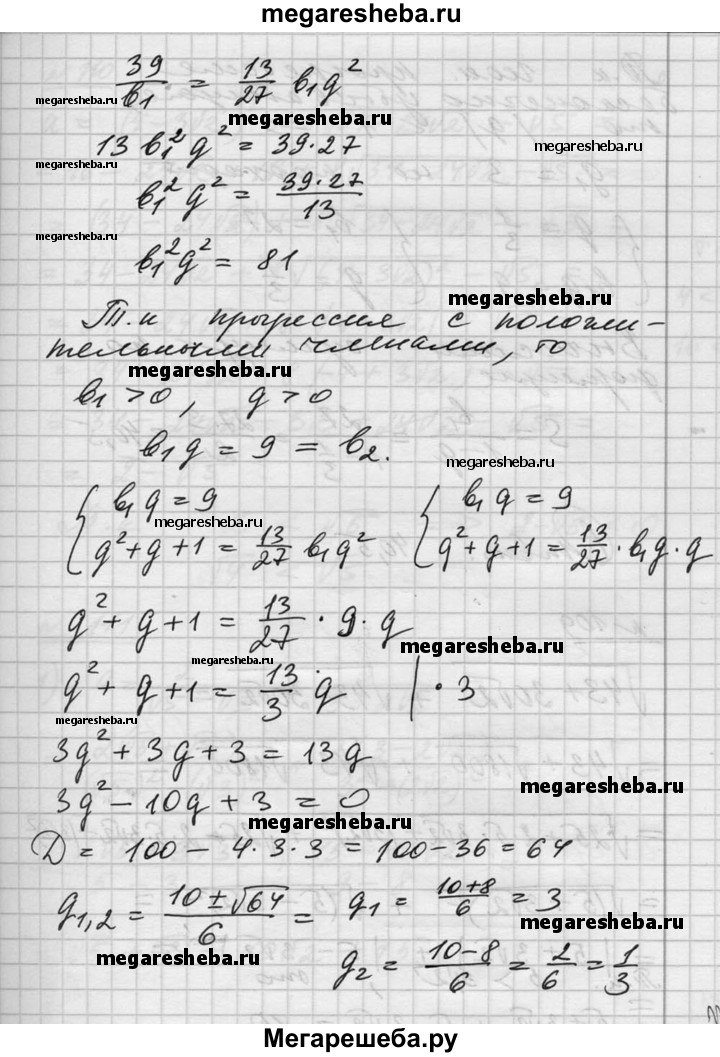 megaresheba.ru
39/b₁ = 13/27 b₁q²
megaresheba.ru
megaresheba.ru
13 b₁² q² = 39·27
megaresheba.ru
megaresheba.ru
b₁² q² = 39·27/13
megaresheba.ru
b₁²q² = 81
megaresheba.ru
Т.к прогрессия с положи-
тельными членами, то
megaresheba.ru
b₁ > 0, q > 0
b₁ q = 9 = b₂.
megaresheba.ru
{ b₁ q = 9 { b₁ q = 9
megaresheba.ru
q² + q + 1 = 13/27 b₁q² q² + q + 1 = 13/27 · b₁q · q
q² + q + 1 = 13/27 · 9 · q
megaresheba.ru
megaresheba.ru
q² + q + 1 = 13/3 q | · 3
megaresheba.ru
3q² + 3q + 3 = 13q
megaresheba.ru
3q² − 10q + 3 = 0
megaresheba.ru
D = 100 − 4·3·3 = 100 − 36 = 64
q₁,₂ = (10 ± √64)/6 = q₁ = (10+8)/6 = 3
megaresheba.ru
megaresheba.ru
q₂ = (10−8)/6 = 2/6 = 1/3
Мегарешеба.ру